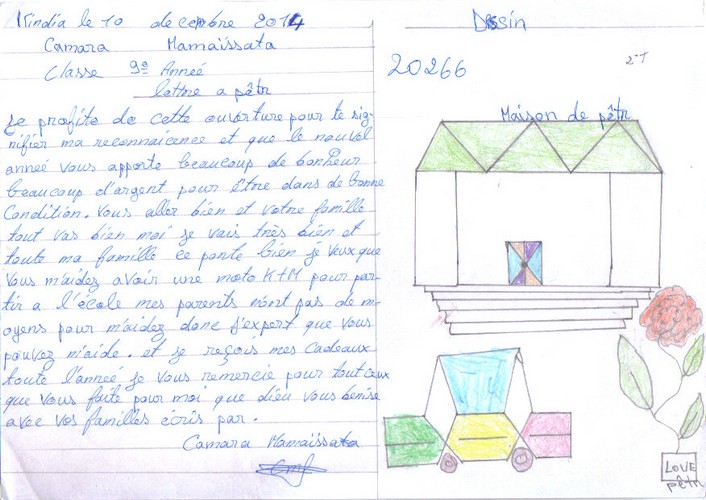 Kindia le 10 decembre 2014
Camara Mamaissata
Classe 9e Année
lettre a pêtr
Je profite de cette ouverture pour te sig-
nifier ma reconnaicence et que le nouvel
anneé vous apporte beaucoup de bonheur
beaucoup d'argent pour être dans de bonne
Condition. Vous aller bien et votre famille
tout vas bien moi je vais très bien et
toute ma famille ce porte bien je veux que
Vous m'aidez avoir une moto KTM pour par-
tir a l'école mes parents n'ont pas de m-
oyens pour m'aidez donc j'expert que vous
pouvez m'aide. et je reçois mes Cadeaux
toute l'anneé je vous remercie pour tout ceux
que vous faite pour moi que dieu vous benise
avec vos familles écris par.
Camara Mamaissata
Dessin
20266
Maison de pêtr
LOVE
pêtr